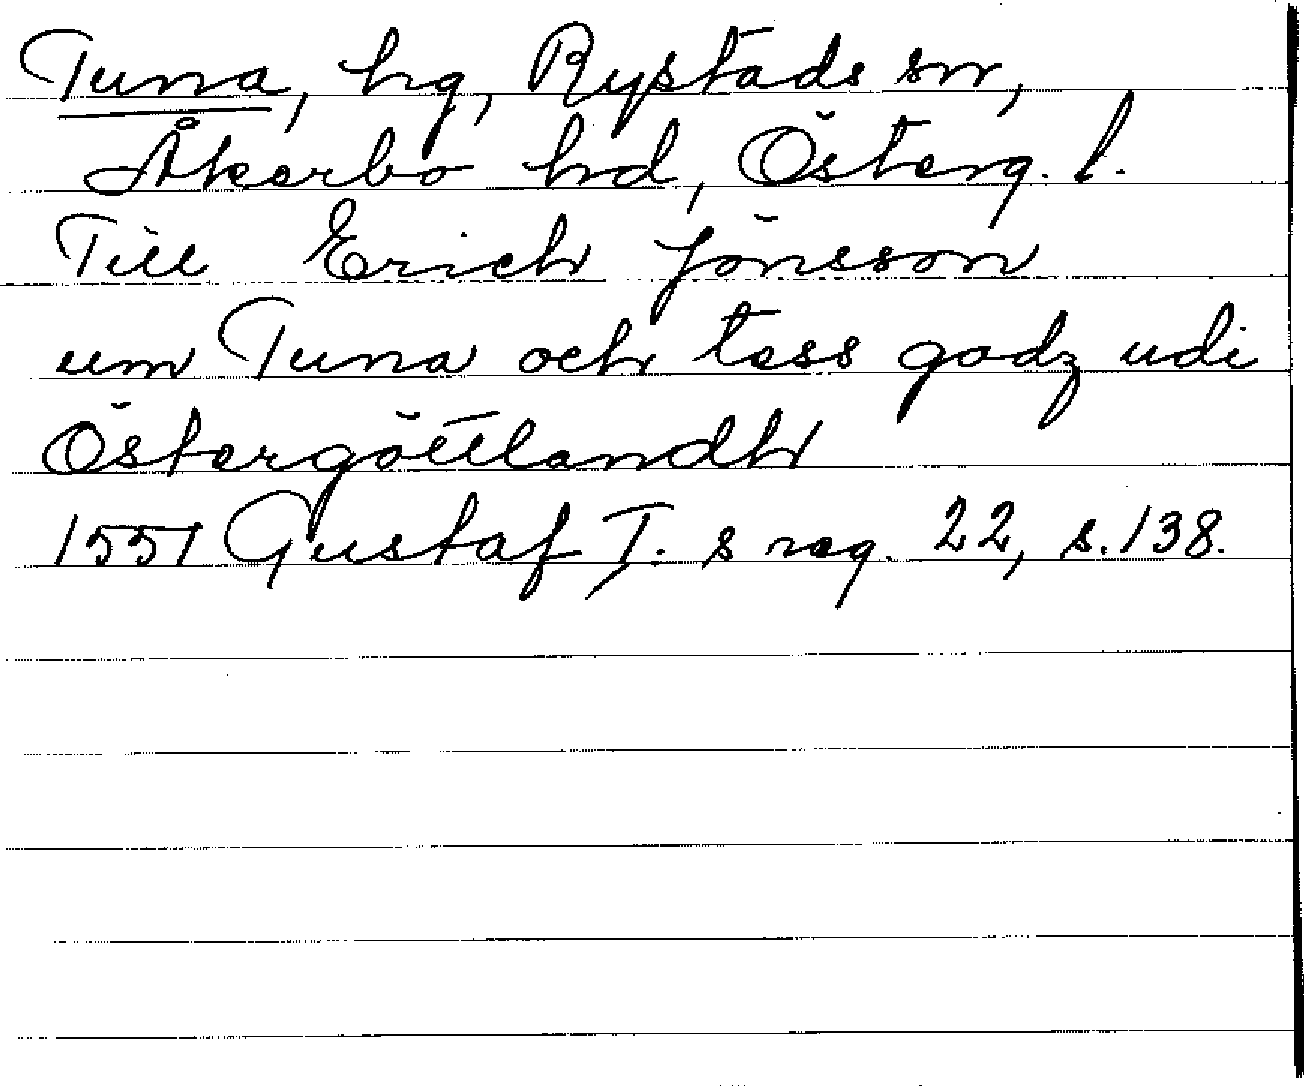 Tuna, hg, Rystads sn,
Åkerbo hd, Österg. l.
Till Erich Jönsson
um Tuna och tess godz udi
Östergöttlandh
1551 Gustaf I. s reg. 22, s. 138.